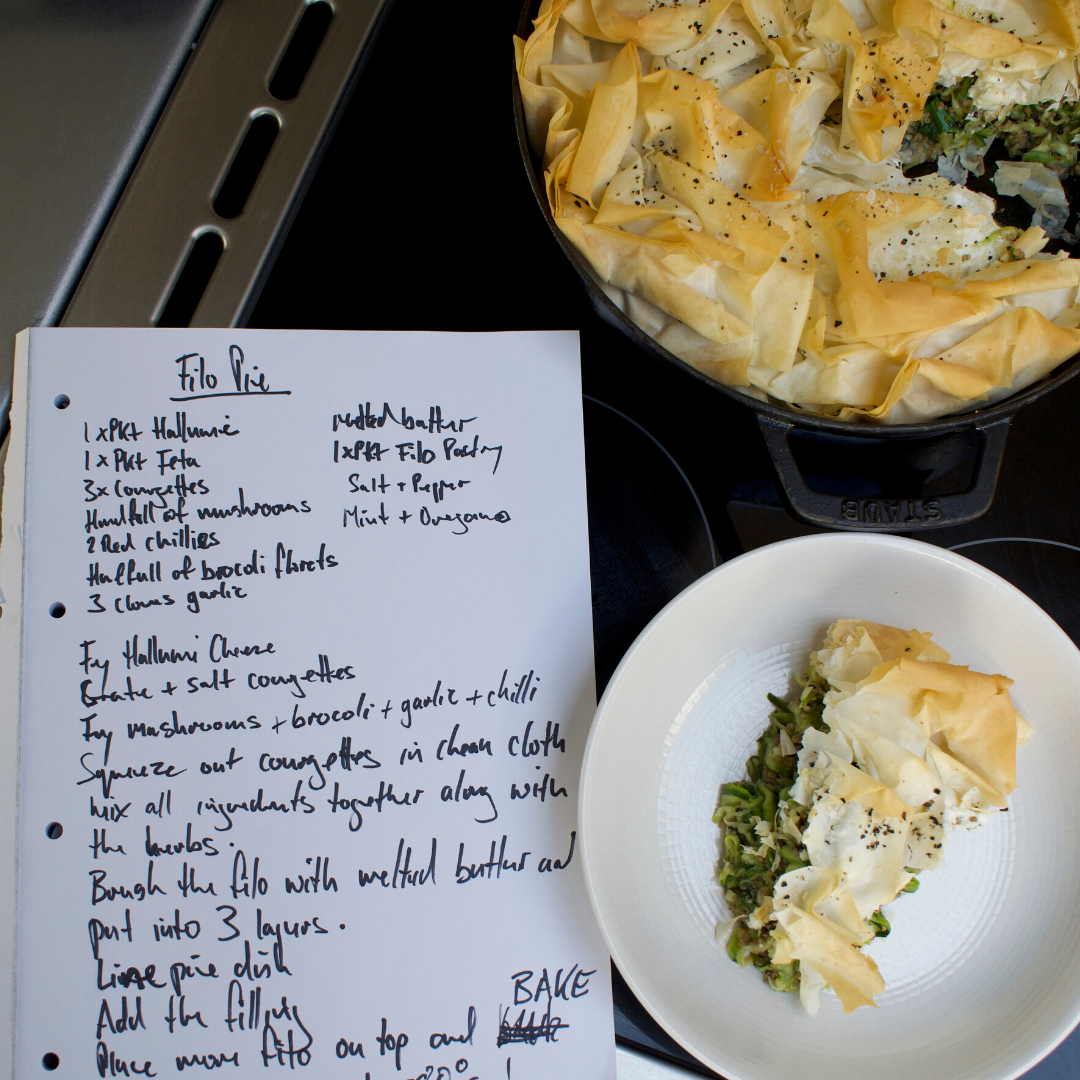 Filo Pie
1 x Pkt Hallumie
1 x Pkt Feta
3x Courgettes
Handfull of mushrooms
2 Red chillies
Halfull of brocoli florets
3 cloves garlic
Melted butter
1x Pkt Filo Pastry
Salt + Pepper
Mint + Oregano
Fry Hallumi Cheese
Grate + salt courgettes
Fry mushrooms + brocoli + garlic + chilli
Squeeze out courgettes in clean cloth
mix all ingredients together along with
the herbs.
the filo with melted butter and
put into 3 layers.
Line pie dish
Add the filling
BAKE
Place more filo on top and
STAUB